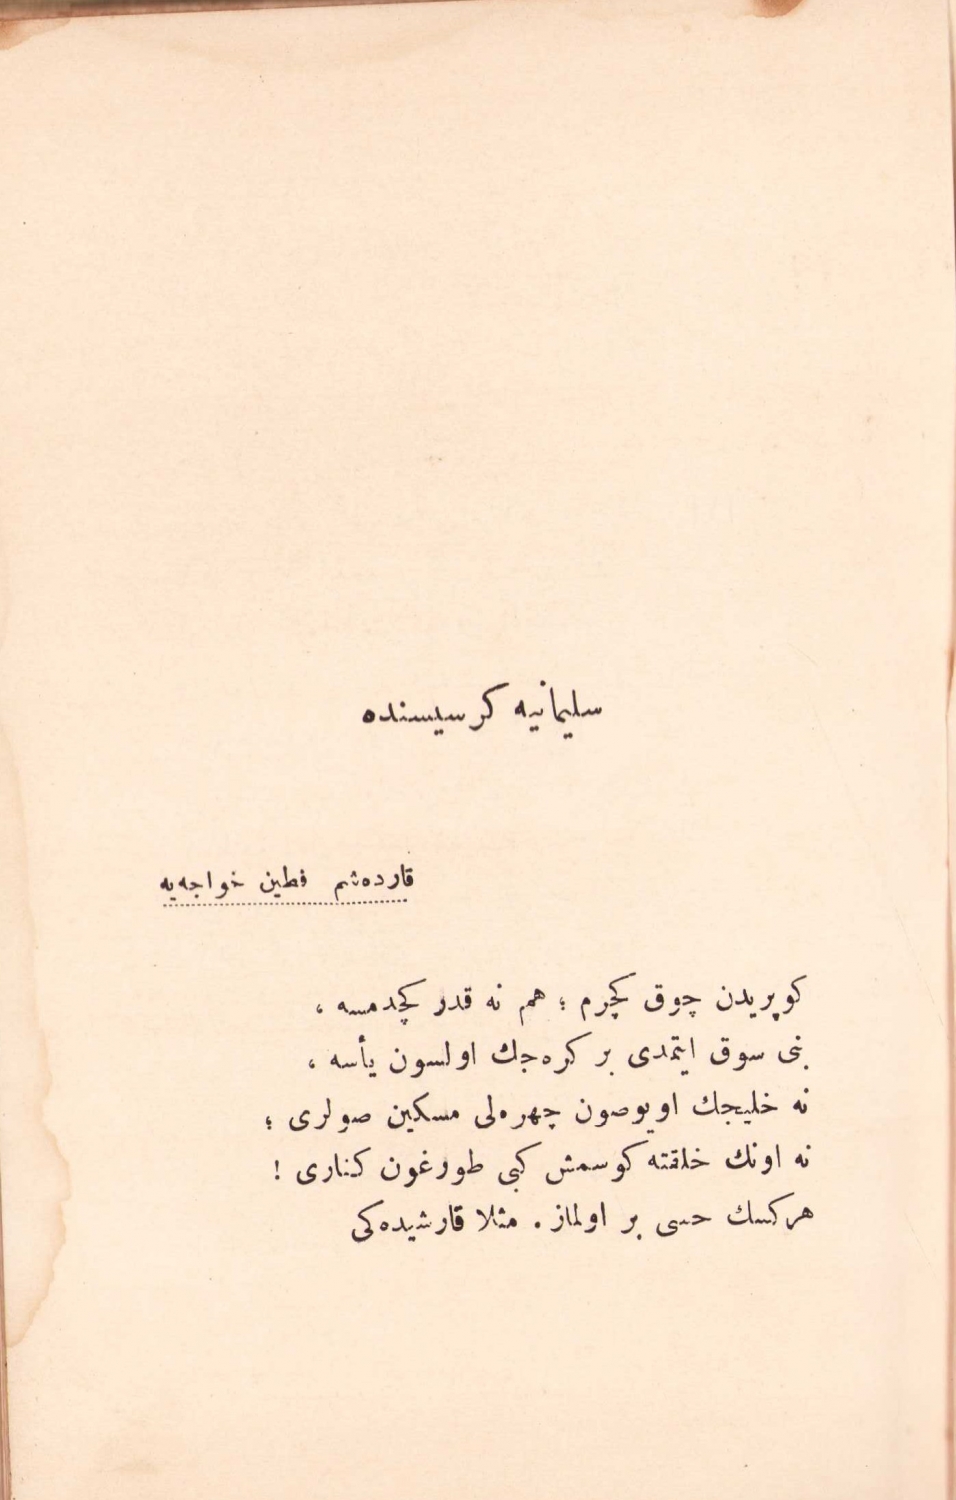 سليمانيه كرسيسنده
قارده‌شم فطين خواجه‌يه
كوپريدن چوق كچرم ؛ هم نه قدر كچدمسه ،
بنى سوق ايتمدى بر كره‌جك اولسون يأسه ،
نه خليجك اويوصون چهره‌لى مسكين صولرى ؛
نه اونك خلقته كوسمش كبى طورغون كنارى !
هركسك حسى بر اولماز . مثلا قارشيده‌كى